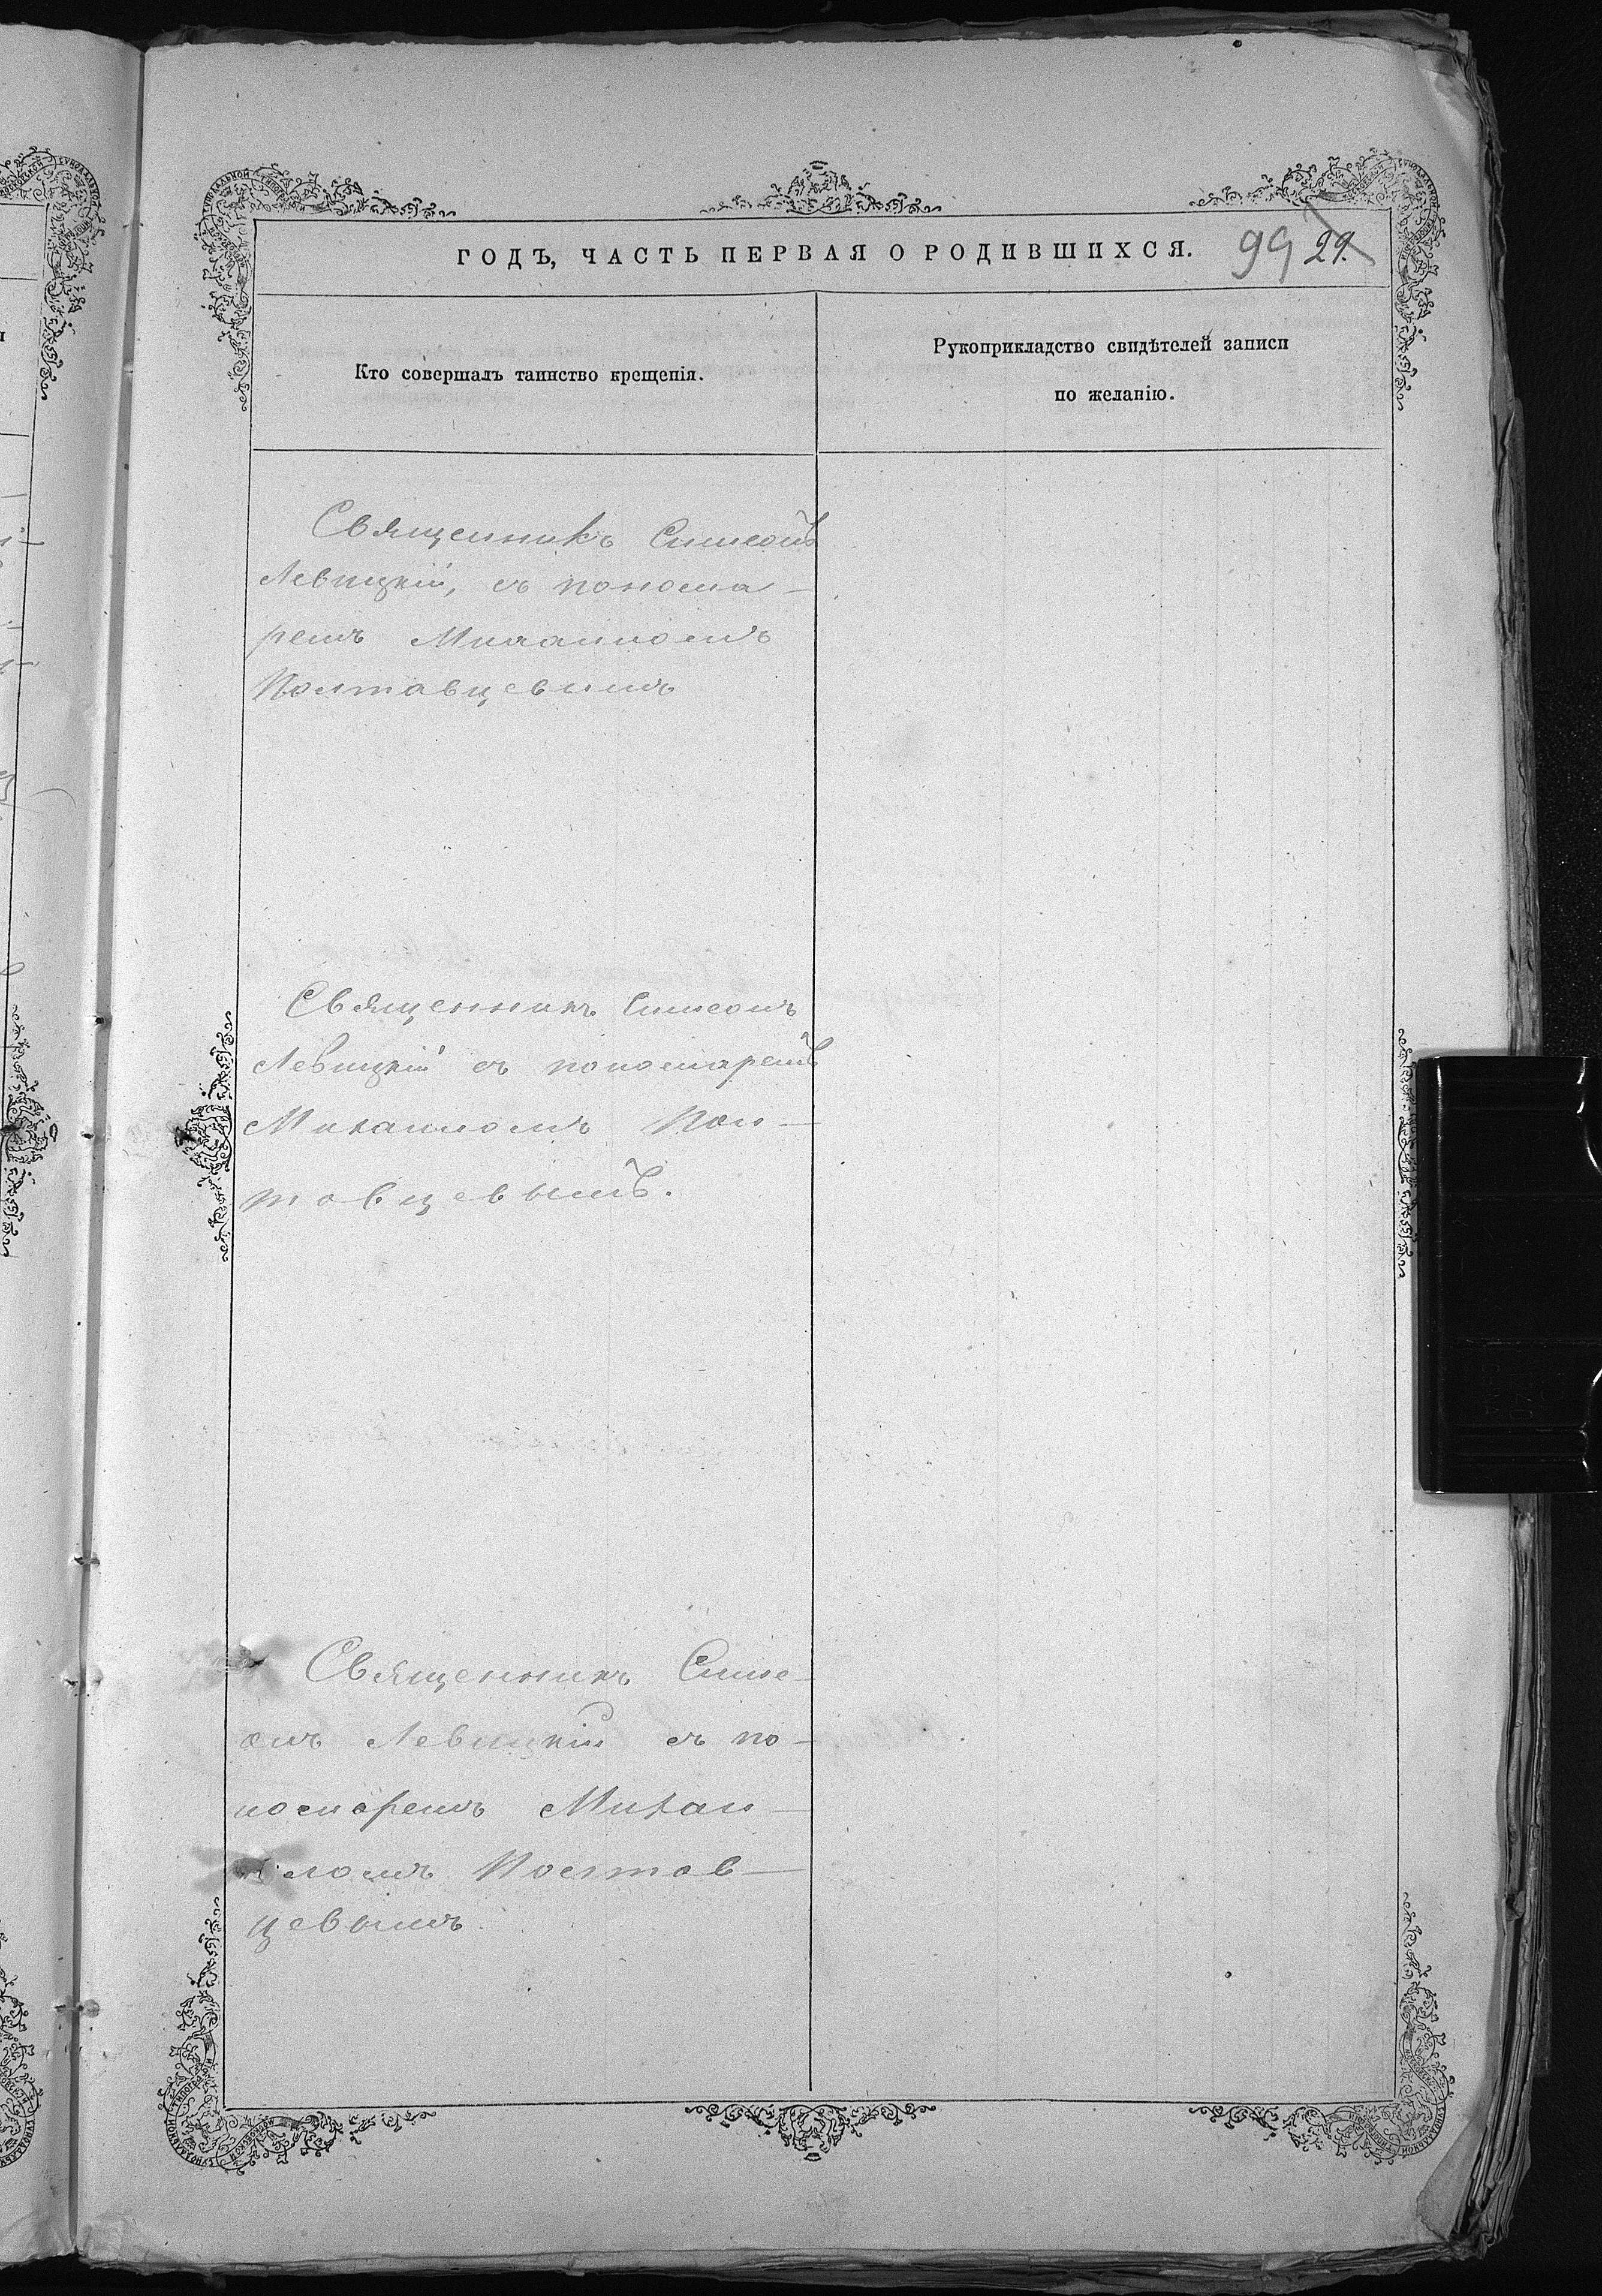 ГОДЪ, ЧАСТЬ ПЕРВАЯ О РОДИВШИХСЯ.
99 29.
Кто совершалъ таинство крещенія.
Рукоприкладство свидѣтелей записи
по желанію.
Священникъ Симеонъ
Левицкій, съ понома-
ремъ Михаиломъ
Полтавцевымъ
Священникъ Симеонъ
Левицкій съ пономаремъ
Михаиломъ Пол-
тавцевымъ.
Священникъ Симе-
онъ Левицкій съ по-
номаремъ Михаи-
ломъ Полтав-
цевымъ.